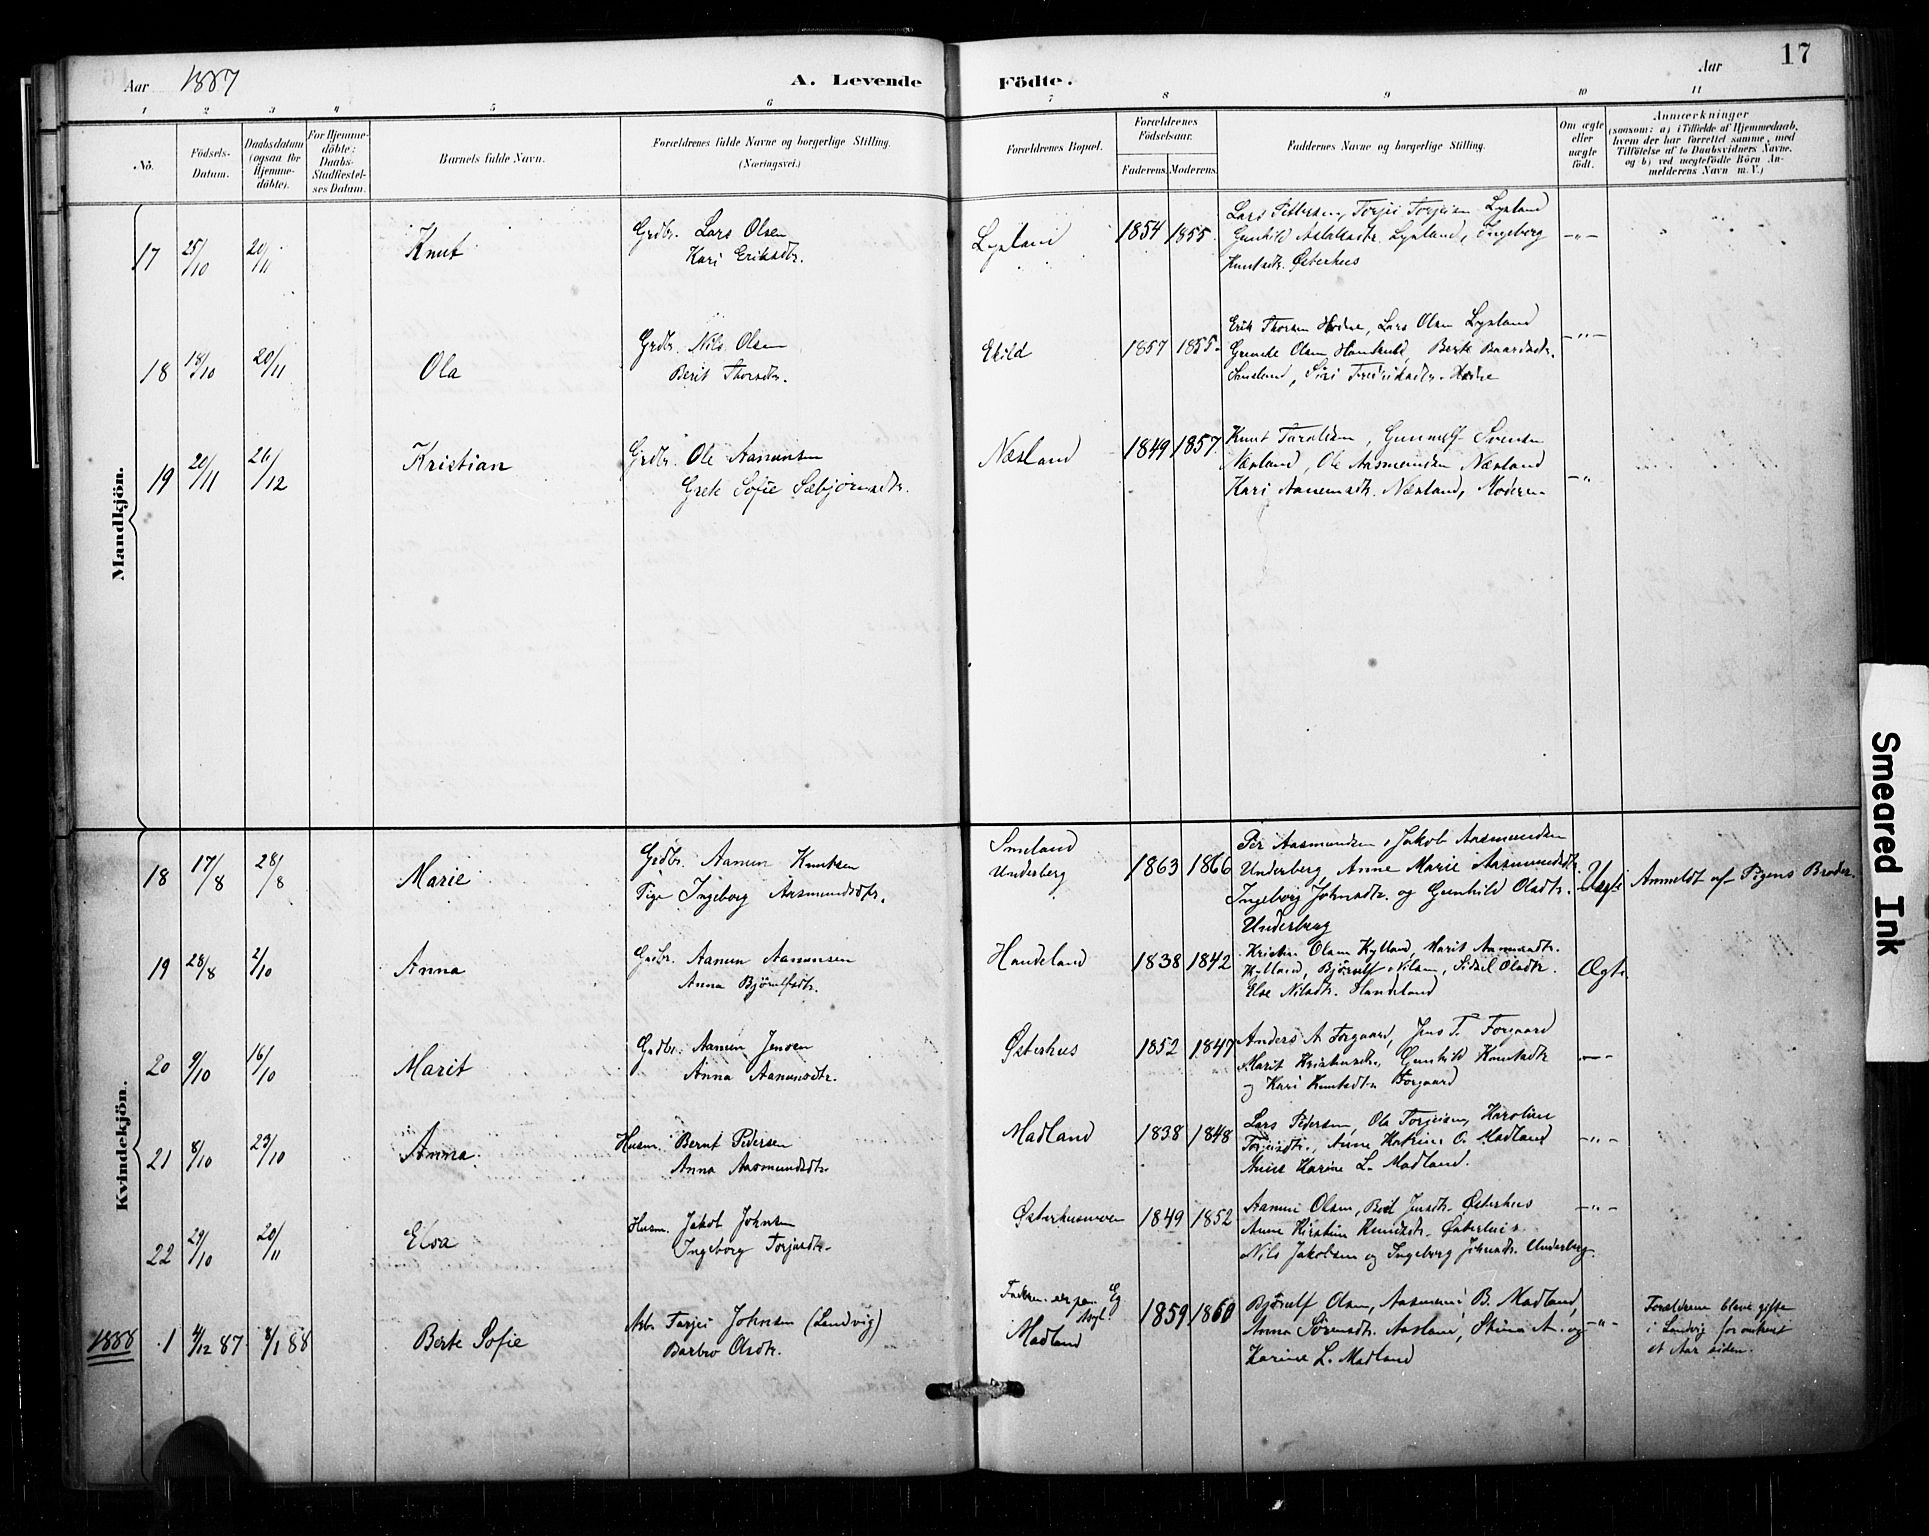 17
Aar 1887 A. Levende Födte. Aar
1 2 3 4 5 6 7 8 9 10 11
No.
Födsels-Datum.
Daabsdatum (ogsaa for Hjemme-döbte).
For Hjemme-döbte: Daabs-Stadfæstel-ses Datum.
Barnets fulde Navn.
Forældrenes fulde Navne og borgerlige Stilling. (Næringsvei.)
Forældrenes Bopæl.
Forældrenes Födselsaar.
Faderens. Moderens.
Faddernes Navne og borgerlige Stilling.
Om ægte eller uægte födt.
Anmærkninger
(saasom: a) i Tilfælde af Hjemmedaab, hvem der har forrettet samme, med Tilföielse af to Daabsvidners Navne, og b) ved uægtefödte Börn An-melderens Navn m. V.)
Mandkjön.
17 25/10 20/11 Knut Grdbr. Lars Olsen Lysland 1854 1855. Lars Pettersen, Torjei Torjeisen Lysland -"-
Kari Eriksdtr. Gunhild Aslaksdtr. Lysland, Ingeborg
Knutsdtr. Østerhus
18 18/10 20/11 Ola Grdbr. Nils Olsen Ekild 1857 1855. Erik Thorsen Hodne, Lars Olsen Lysland -"-
Berit Thorsdtr. Olsen Berte Baardsdtr.
Smeland, Siri Fredriksdtr. Hodne
19 20/11 26/12 Kristian Grdbr. Ole Aanunsen Næsland 1849 1857. Knut Taraldsen, Gunnulf Svensen
Grete Sofie Sæbjørnsdtr. Næsland, Ole Aasmundsen Næsland
Kari Aanensdtr. Næsland, Moderen -"-
Kvindekjön.
18 17/8 28/8 Marie Grdbr. Aanun Knutsen Smeland 1863 1866 Per Aasmundsen, Jakob Aasmundsen
Pige Ingeborg Aasmundsdtr. Underberg Underberg Anne Marie Aasmundsdtr. Uægte Anmeldt af Pigens Broder.
Ingeborg Johnsdtr. og Gunhild Olsdtr.
Underberg
19 28/8 2/10 Anna Grdbr. Aanun Aanunsen Handeland 1838 1842 Kristen Olsen Kylland, Marit Aanunsdtr.
Anna Bjørulfsdtr. Kylland, Bjørulf Nilsen, Sidsel Olsdtr. Ægte
Else Nilsdtr. Handeland
20 9/10 16/10 Marit Grdbr. Aanun Jensen Østerhus 1852 1847 Anders A Forgaard, Jens T. Forgaard
Anna Aanunsdtr. Marit Gunhild Knutsdtr. -"-
og Kari Knutsdtr. Forgaard
21 8/10 23/10 Anna. Husm. Bernt Pedersen Madland 1838 1848 Lars Pedersen, Ola Torjeisen, Karoline
Anna Aasmundsdtr. Torjeisdtr., Anne Katrine O. Madland -"-
Anne Karine L. Madland.
22 29/10 20/11 Elsa Husm. Jakob Johnsen Østerhusmoen 1849 1852 Aanun Olsen, Berit Jensdtr. Østerhus -"-
Ingeborg Torjusdtr. Anne Kirstine Knutsdtr. Østerhus
Nils Jakobsen og Ingeborg Johnsdtr. Underberg.
1888 1 4/12 87. 8/1 88 Berte Sofie Arb. Tarjei Johnsen (Landvig) Faderen Eg 1859 1860 Bjørulf Olsen, Aasmund B. Madland, Forældrene bleve gifte
Barbro Olsdtr. Asyl. Madland Anna Sørensdtr. Aasland, Stina A. og -"- i Landvig for omtrent
Karine L. Madland et Aar siden.
Smeared Ink